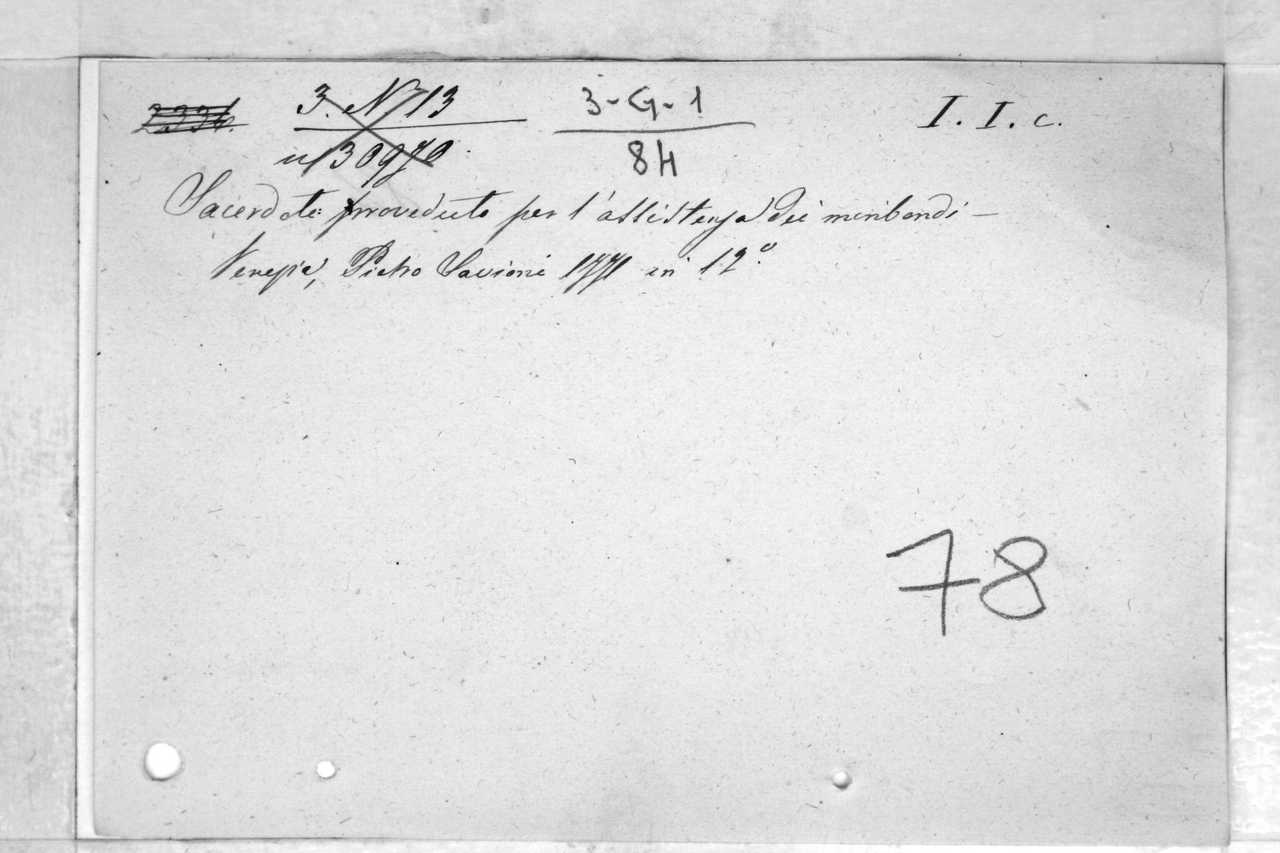 3. N 13 3-G-1 I. I. c.
84
Sacerdote proveduto per l'assistenza dei moribondi —
Venezia, Pietro Savioni 1771 in 12.°
78